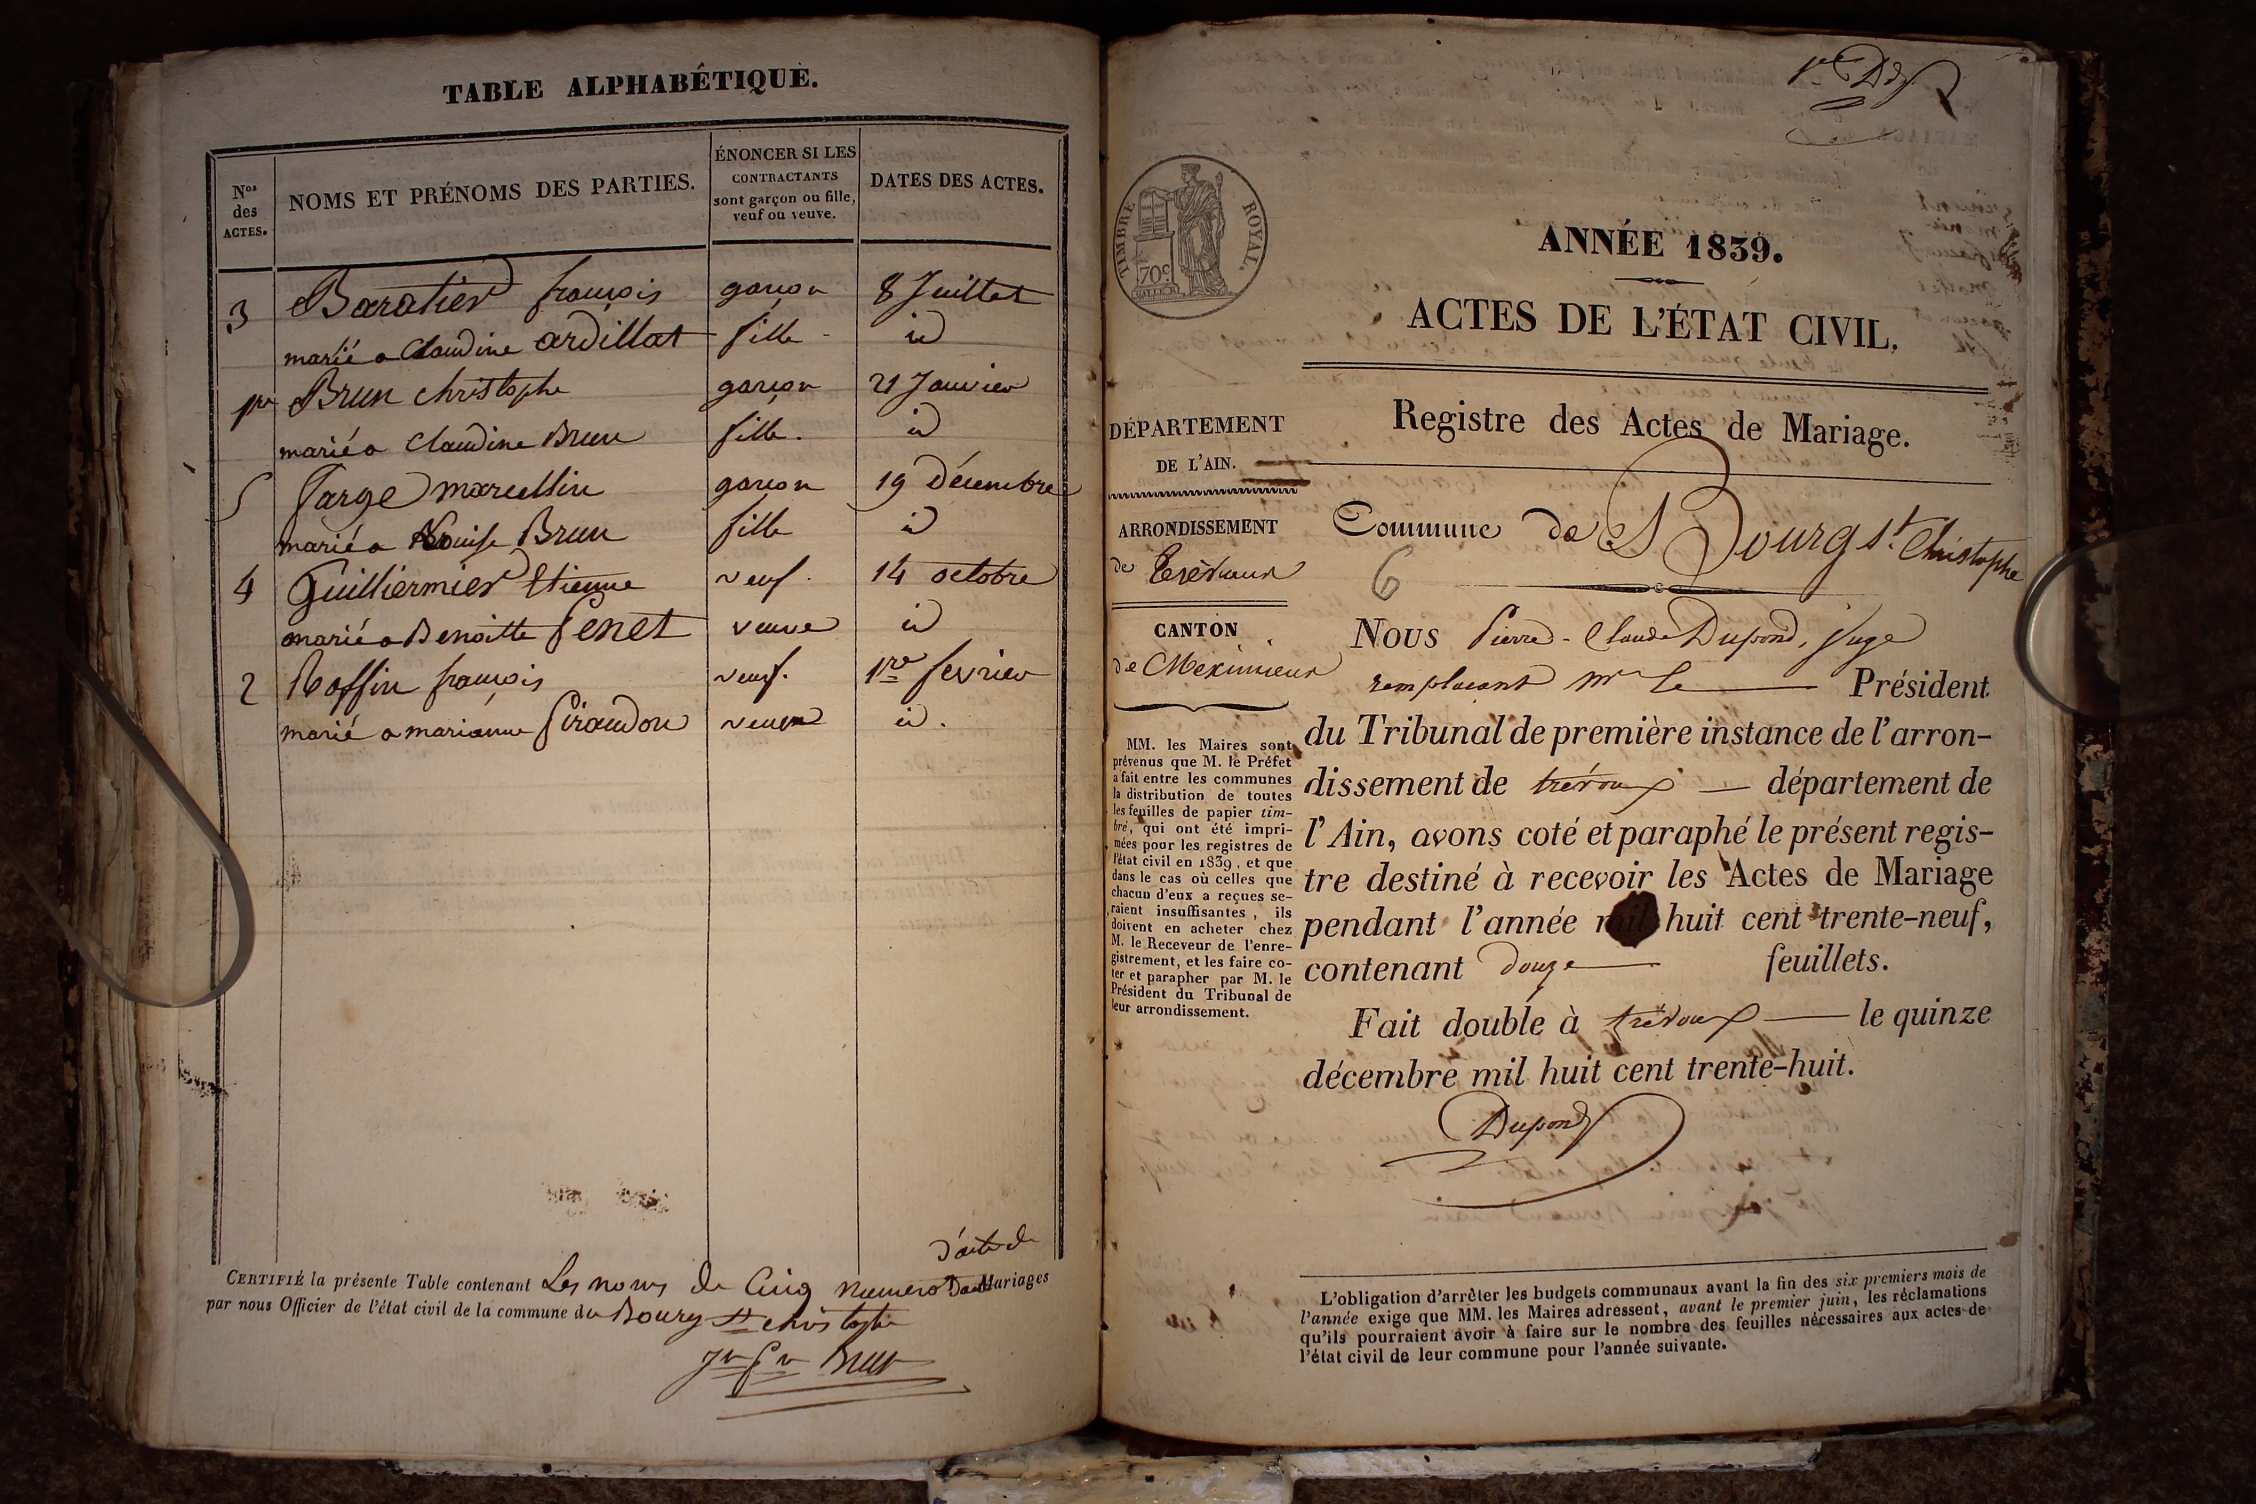 TABLE ALPHABÉTIQUE.
Nos des ACTES.
NOMS ET PRÉNOMS DES PARTIES.
ÉNONCER SI LES CONTRACTANTS sont garçon ou fille, veuf ou veuve.
DATES DES ACTES.
3 Baratier françois garçon 8 Juillet
marié a Claudine ardillat fille id
1er Brun christophe garçon 21 Janvier
marié a claudine Brun fille. id
5 farge marcellin garçon 19 Décembre
marié a Louise Brun fille id
4 Guilliermier Etienne veuf. 14 octobre
marié a Benoitte Genet veuve id
2 Roffin françois veuf. 1re fevrier
marié a marianne Giraudon veuve id.
d'acte de
CERTIFIÉ la présente Table contenant Les noms de Cinq numero Mariages
par nous Officier de l'état civil de la commune du Bourg st christophe
Brun
TIMBRE ROYAL.
70c
ANNÉE 1839.
ACTES DE L'ÉTAT CIVIL.
DÉPARTEMENT
DE L'AIN.
ARRONDISSEMENT
de Trévoux
CANTON
de Meximieux
MM. les Maires sont
prévenus que M. le Préfet
a fait entre les communes
la distribution de toutes
les feuilles de papier tim-
bré, qui ont été impri-
mées pour les registres de
l'état civil en 1839, et que
dans le cas où celles que
chacun d'eux a reçues se-
raient insuffisantes, ils
doivent en acheter chez
M. le Receveur de l'enre-
gistrement, et les faire co-
ter et parapher par M. le
Président du Tribunal de
leur arrondissement.
Registre des Actes de Mariage.
Commune de Bourg st. Christophe
6
NOUS Pierre-Claude Dupond, Juge
remplacant mr le Président
du Tribunal de première instance de l'arron-
dissement de trévoux département de
l'Ain, avons coté et paraphé le présent regis-
tre destiné à recevoir les Actes de Mariage
pendant l'année mil huit cent trente-neuf,
contenant douze feuillets.
Fait double à trévoux le quinze
décembre mil huit cent trente-huit.
Dupond
L'obligation d'arrêter les budgets communaux avant la fin des six premiers mois de
l'année exige que MM. les Maires adressent, avant le premier juin, les réclamations
qu'ils pourraient avoir à faire sur le nombre des feuilles nécessaires aux actes de
l'état civil de leur commune pour l'année suivante.